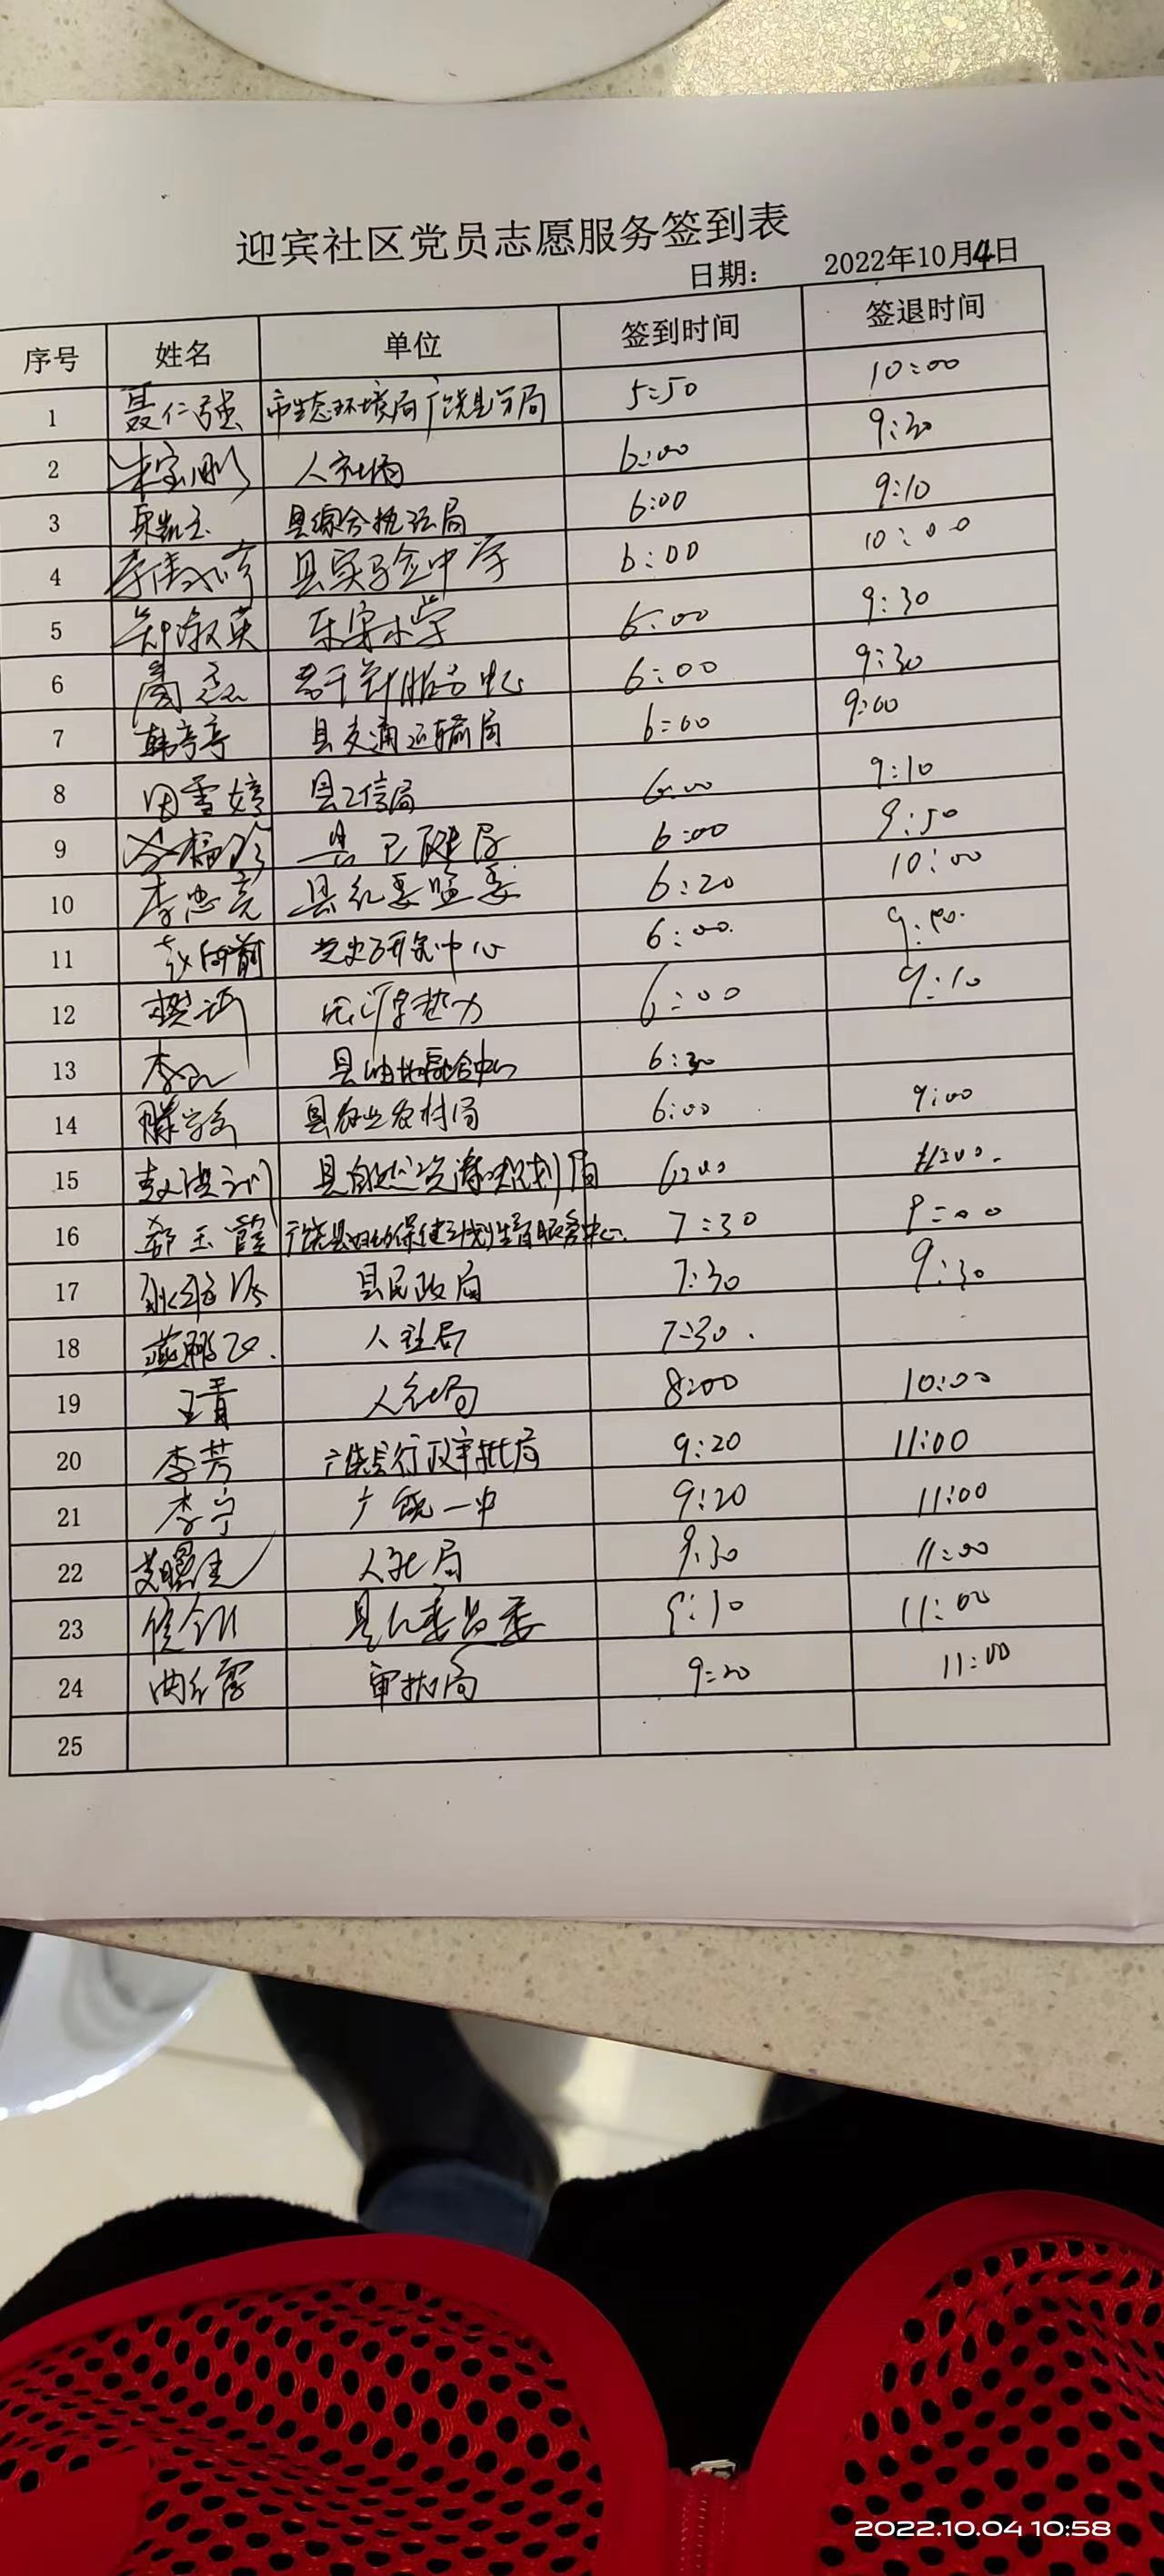 迎宾社区党员志愿服务签到表
日期： 2022年10月4日
序号 姓名 单位 签到时间 签退时间
1 聂仁强 市生态环境局广饶县分局 5:50 10:00
2 人社局 6:00 9:30
3 县综合执法局 6:00 9:10
4 县实验中学 6:00 10:00
5 乐安小学 6:00 9:30
6 6:00 9:30
7 韩亭亭 县交通运输局 6:00 9:00
8 田雪婷 县工信局 6:00 9:10
9 县卫健局 6:00 9:50
10 李忠亮 县纪委监委 6:20 10:00
11 赵向前 党史研究中心 6:00
12 热力 6:00 9:10
13 县油地融合中心 6:30
14 县农业农村局 6:00 9:00
15 县自然资源规划局 6:00
16 郝玉霞 广饶县妇幼保健计划生育服务中心
7:30
17 县民政局 7:30 9:30
18 人社局 7:30
19 王青 人社局 8:00 10:00
20 李芳 广饶县行政审批局 9:20 11:00
21 李宁 广饶一中 9:20 11:00
22 人社局 9:30 11:00
23 县纪委监委 11:00
24 审批局 9:20 11:00
25
2022.10.04 10:58